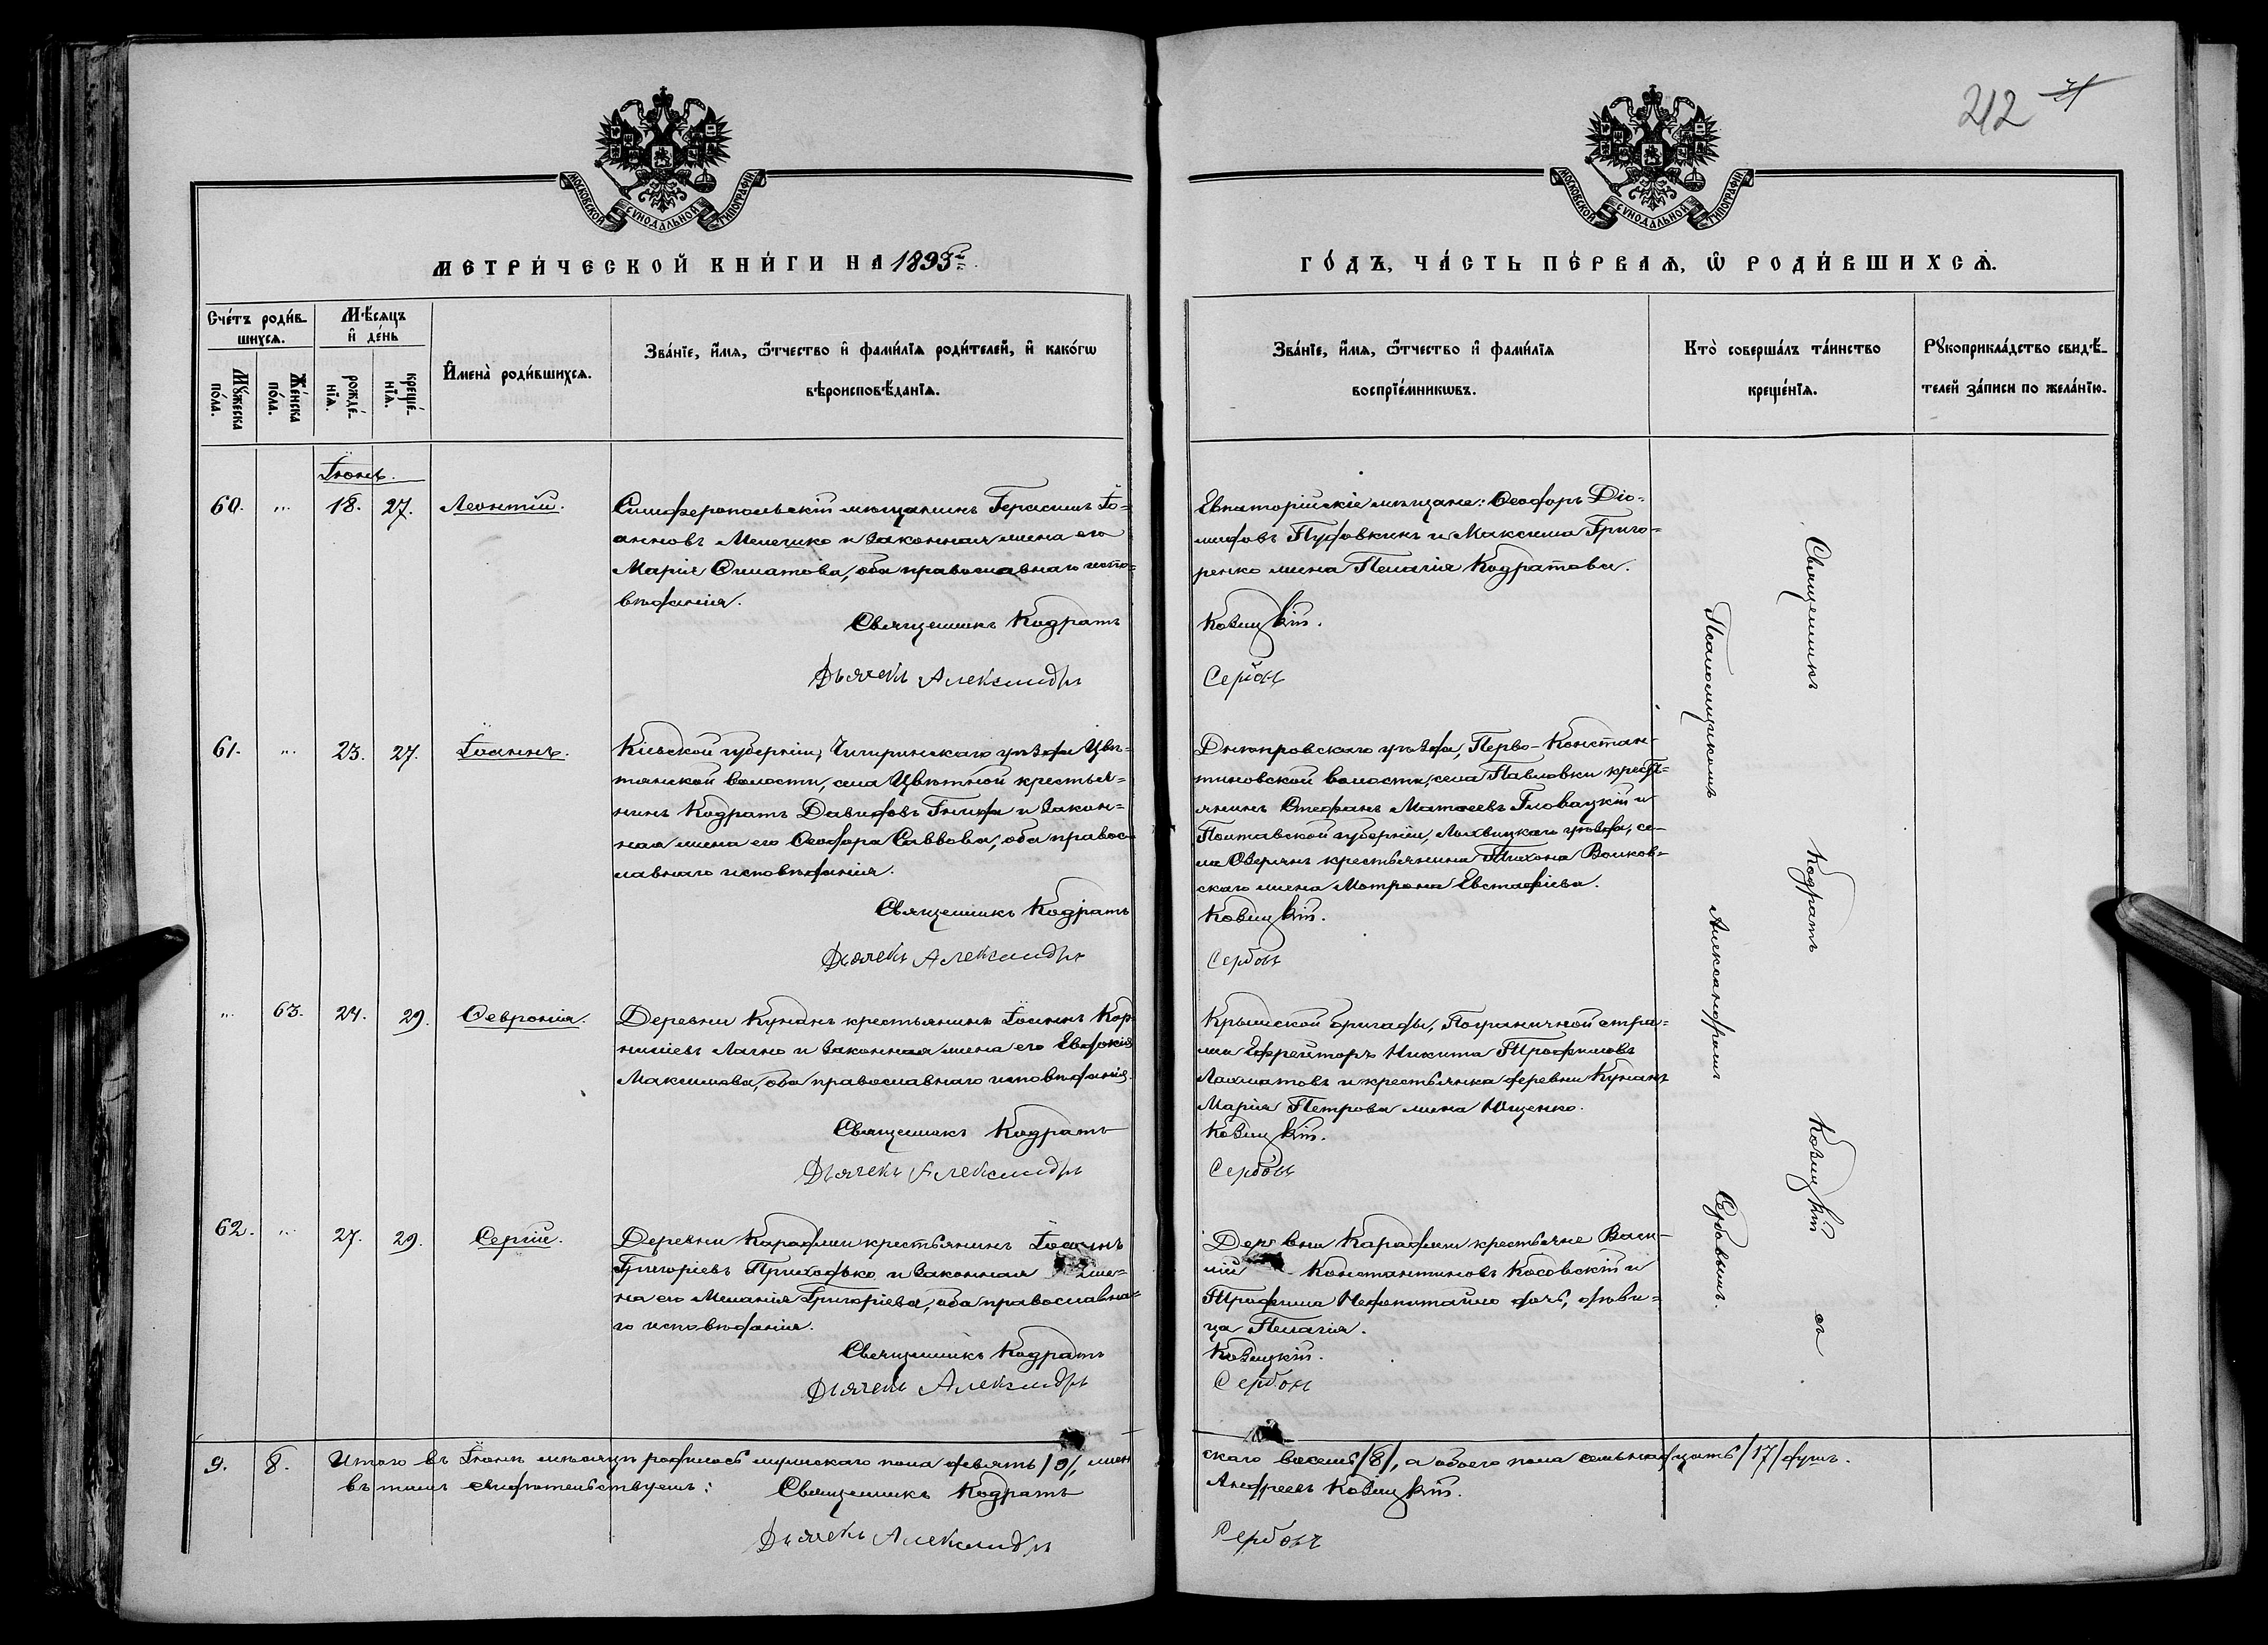 212
МОСКОВСКОЙ СѴНОДАЛЬНОЙ ТИПОГРАФІИ
МОСКОВСКОЙ СѴНОДАЛЬНОЙ ТИПОГРАФІИ
МЕТРИ́ЧЕСКОЙ КНИ́ГИ НА 1893 г.
ГО́ДЪ, ЧА́СТЬ ПЕ́РВАѦ, Ѡ҆ РОДИ́ВШИХСѦ.
Сче́тъ роди́в-
шихсѧ.
Мѣ́сѧцъ
и҆ де́нь
Мꙋ́жеска по́ла.
Же́нска по́ла.
рожде́-
нїѧ.
креще́-
нїѧ.
И҆мена̀ роди́вшихсѧ.
Зва́нїе, и҆́мѧ, ѻ҆́тчество и҆ фами́лїѧ роди́телей, и҆ како́гѡ
вѣроисповѣ́данїѧ.
Зва́нїе, и҆́мѧ, ѻ҆́тчество и҆ фами́лїѧ
воспрїе́мникѡвъ.
Кто̀ соверша́лъ та́инство
креще́нїѧ.
Рꙋкоприкла́дство свидѣ́-
телей за́писи по жела́нїю.
Іюнь.
60. „ 18. 27. Леонтій.
Симферопольскій мѣщанинъ Герасимъ Іо-
анновъ Мелешко и законная жена его
Марія Филатова, оба православнаго испо-
вѣданія.
Священникъ Кодратъ
Дьячекъ Александръ
Евпаторійскіе мѣщане: Ѳеодоръ Діо-
мидовъ Пудовкинъ и Максима Григо-
ренко жена Пелагія Кодратова.
Козицкій.
Сербовъ
61. „ 23. 27. Іоаннъ.
Кіевской губерніи, Чигиринскаго уѣзда Цвѣ-
тянской волости, села Цвѣтной крестья-
нинъ Кодратъ Давидовъ Гнида и закон-
ная жена его Ѳеодора Саввова, оба правос-
лавнаго исповѣданія.
Священникъ Кодратъ
Дьячекъ Александръ
Днѣпровскаго уѣзда, Перво-Констан-
тиновской волости, села Павловки крест-
янинъ Стефанъ Матѳеевъ Гловацкій и
Полтавской губерніи, Лохвицкаго уѣзда, се-
ла Озерянъ крестьянина Тихона Волков-
скаго жена Мотрона Евстафіева.
Козицкій.
Сербовъ
„ 63. 24. 29. Ѳевронія.
Деревни Кунанъ крестьянинъ Іоаннъ Кор-
ниліевъ Лагно и законная жена его Евдокія
Максимова, оба православнаго исповѣданія.
Священникъ Кодратъ
Дьячекъ Александръ
Крымской бригады, Пограничной стра-
жи Ефрейторъ Никита Трофимовъ
Лахматовъ и крестьянка деревни Кунанъ
Марія Петрова жена Ющенко.
Козицкій.
Сербовъ
62. „ 27. 29. Сергій.
Деревни Караджи крестьянинъ Іоаннъ
Григоріевъ Приходько и законная же-
на его Меланія Григоріева, оба православна-
го исповѣданія.
Священникъ Кодратъ
Дьячекъ Александръ
Деревни Караджи крестьяне Васи-
лій Константиновъ Косовскій и
Трофима Недопитайло дочь, дѣви-
ца Пелагія.
Козицкій.
Сербовъ
Священникъ Кодратъ Козицкій съ
Псаломщикомъ Александромъ Сербовымъ.
9. 8. Итого въ Іюнѣ мѣсяцѣ родилось мужскаго пола девять /9/, жен
скаго восемь /8/, а обоего пола семьнадцать /17/ душъ.
въ томъ свидѣтельствуемъ: Священникъ Кодратъ
Андреевъ Козицкій.
Дьячекъ Александръ
Сербовъ